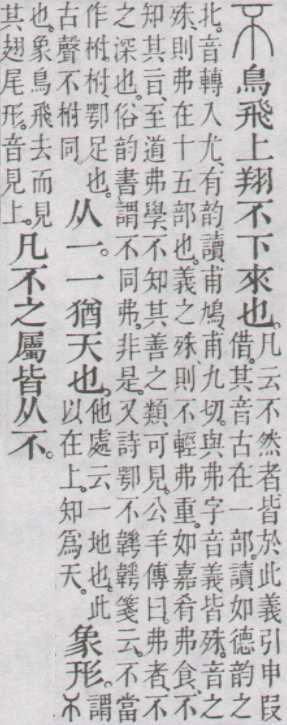 鳥飛上翔不下來也。凡云不然者皆於此義引申叚
借。其音古在一部。讀如德韵之
北。音轉入尤、有韵讀甫鳩、甫九切。與弗字音義皆殊。音之
殊、則弗在十五部也。義之殊、則不輕弗重。如嘉肴弗食、不
知其旨、至道弗學、不知其善之類可見。公羊傳曰。弗者、不
之深也。俗韵書謂不同弗。非是。又詩鄂不韡韡箋云、不當
作柎。柎、鄂足也。
古聲不柎同。
从一。一猶天也。
他處云一地也。此
以在上。知爲天。
象形。謂
不
也。象鳥飛去而見
其翅尾形。音見上。
凡不之屬皆从不。